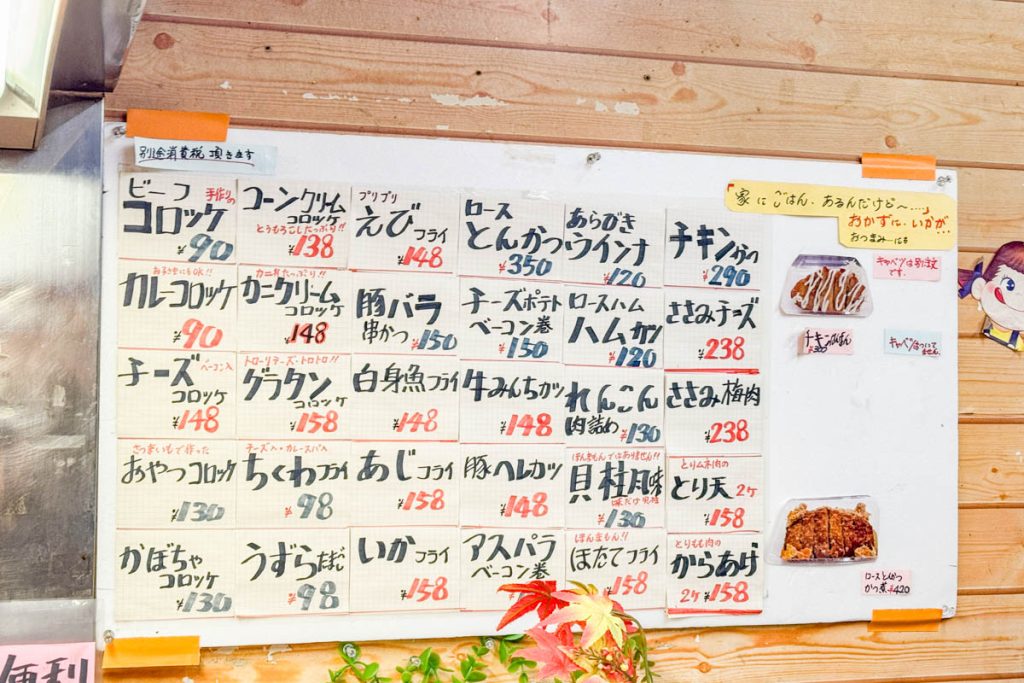 別途消費税頂きます
ビーフ 手作りの
コロッケ
¥90
コーンクリーム
コロッケ
とうもろこしたっぷり!!
¥138
プリプリ
えびフライ
¥148
ロース
とんかつ
¥350
あらびき
ウインナ
¥120
チキンカツ
¥290
お子さまにもOK!!
カレーコロッケ
¥90
カニ有たっぷり!!
カニクリーム
コロッケ
¥148
豚バラ
串かつ
¥150
チーズポテト
ベーコン巻
¥150
ロースハム
ハムカツ
¥120
ささみチーズ
¥238
チーズ ベーコン入
コロッケ
¥148
トローリチーズ・トロトロ!!
グラタン
コロッケ
¥158
白身魚フライ
¥148
牛みんちカツ
¥148
れんこん
肉詰め
¥130
ささみ梅肉
¥238
さつまいもで作った
おやつコロッケ
¥130
チーズ入・カレースパ入
ちくわフライ
¥98
あじフライ
¥158
豚ヘレカツ
¥148
ほんまもんではありません!!
貝柱風味
味だけ貝柱
¥130
とりムネ肉の
とり天 2ケ
¥158
かぼちゃ
コロッケ
¥130
うずらたまご
¥98
いかフライ
¥158
アスパラ
ベーコン巻
ほんまもん!!
ほたてフライ
¥158
とりもも肉の
からあげ
2ケ ¥158
「家にごはん、あるんだけど〜....」
おかずに、いかが..
おつまみーにも
キャベツは別注文
です。
¥300
キャベツはついて
ません。
ロースとんかつ
かつ煮¥420
便利